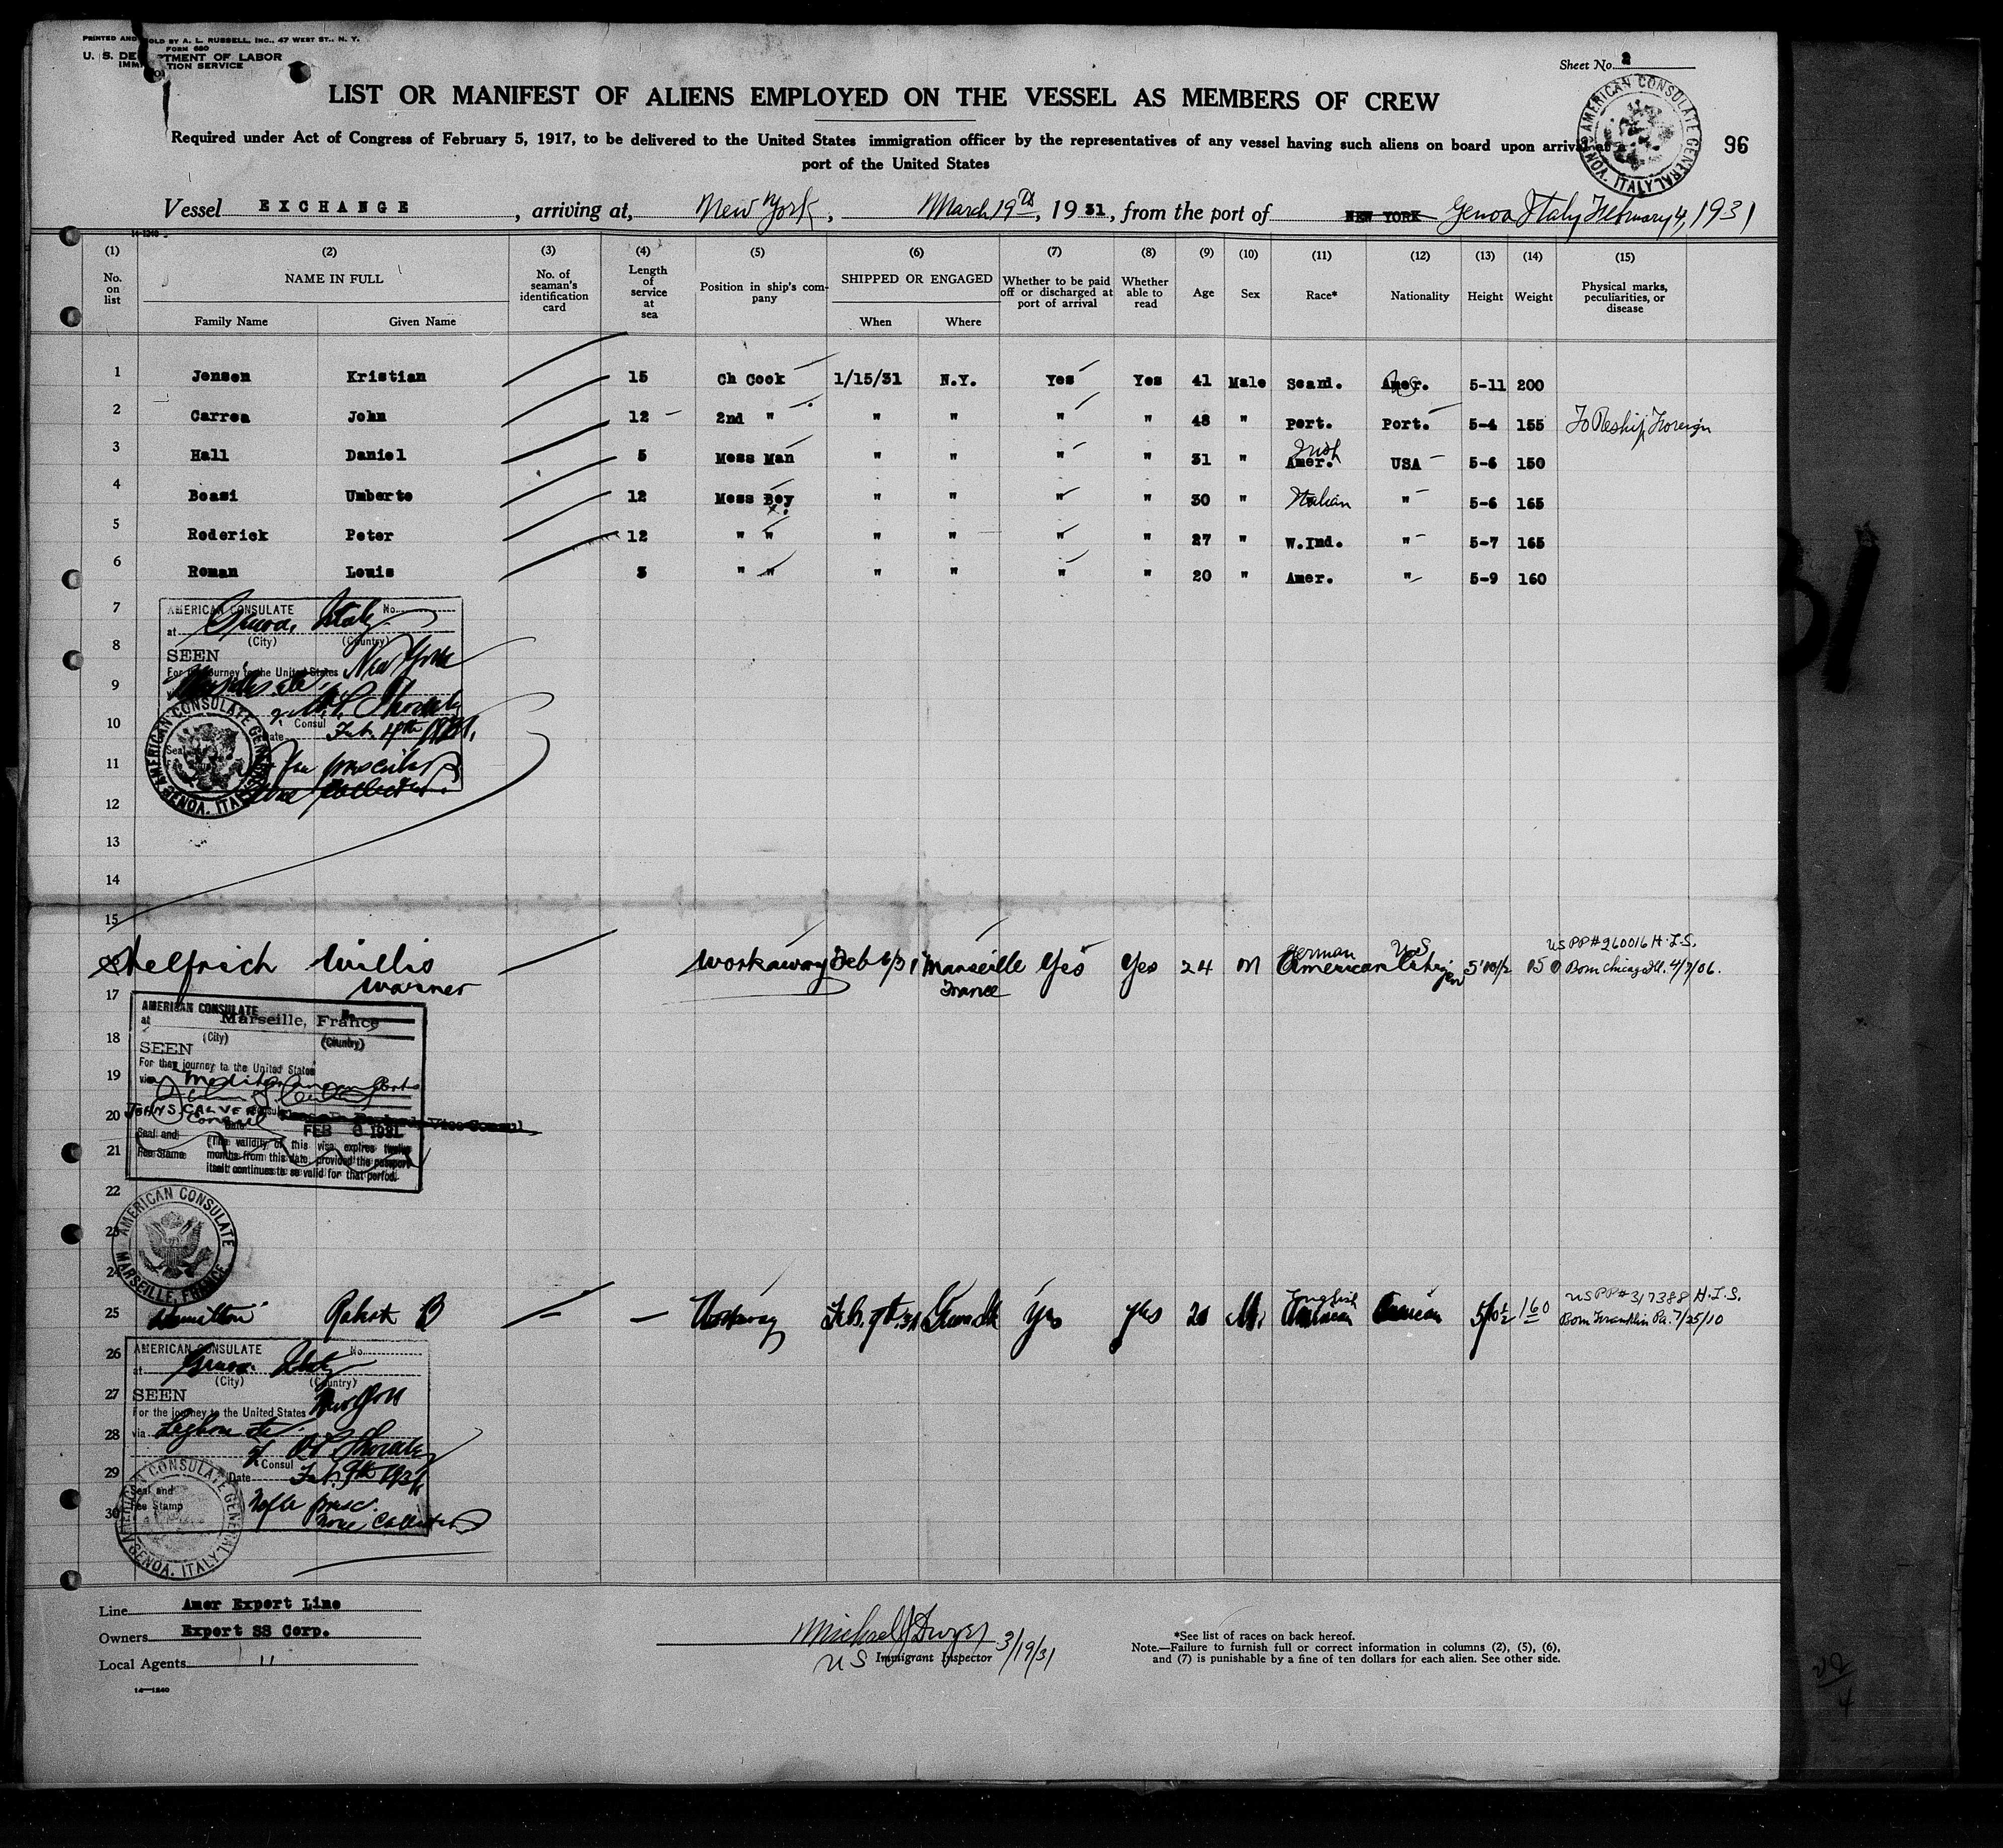 PRINTED AND SOLD BY A. L. RUSSELL, INC., 47 WEST ST., N. Y.
FORM 680
U. S. DEPARTMENT OF LABOR
IMMIGRATION SERVICE
Sheet No. 2
LIST OR MANIFEST OF ALIENS EMPLOYED ON THE VESSEL AS MEMBERS OF CREW
Required under Act of Congress of February 5, 1917, to be delivered to the United States immigration officer by the representatives of any vessel having such aliens on board upon arrival at a
port of the United States
AMERICAN CONSULATE GENERAL GENOA, ITALY
96
Vessel EXCHANGE, arriving at, New York, March 19th, 1931, from the port of NEW YORK Genoa Italy February 4, 1931
14-1240
(1) (2) (3) (4) (5) (6) (7) (8) (9) (10) (11) (12) (13) (14) (15)
No. on list
NAME IN FULL
Family Name Given Name
No. of seaman's identification card
Length of service at sea
Position in ship's company
SHIPPED OR ENGAGED
When Where
Whether to be paid off or discharged at port of arrival
Whether able to read
Age
Sex
Race*
Nationality
Height
Weight
Physical marks, peculiarities, or disease
1 Jensen Kristian 15 Ch Cook 1/15/31 N.Y. Yes Yes 41 Male Scand. Amer. 5-11 200
2 Carrea John 12 2nd " " " " " 48 " Port. Port. 5-4 155 To Reship Foreign
3 Hall Daniel 5 Mess Man " " " " 31 " Amer. Irish USA 5-6 150
4 Beasi Umberto 12 Mess Boy " " " " 30 " Italian " 5-6 165
5 Roderick Peter 12 " " " " " " 27 " W.Ind. " 5-7 165
6 Roman Louis 3 " " " " " " 20 " Amer. " 5-9 160
7
8
9
10
11
12
13
14
15
AMERICAN CONSULATE No.
at Genoa, Italy
(City) (Country)
SEEN
For the journey to the United States New York
via Marseilles etc.
Consul
Date Feb. 4th 1931.
Seal and
No fee prescribed
None collected
AMERICAN CONSULATE GENERAL GENOA, ITALY
Helfrich Willis Warner Workaway Feb 6/31 Marseille France Yes Yes 24 M German American US Citizen 5'10 1/2 150 US PP# 260016 H.I.S. Born Chicago Ill. 4/7/06.
17
18
19
20
21
22
23
24
AMERICAN CONSULATE No.
at Marseille, France
(City) (Country)
SEEN
For the journey to the United States
via Mediterranean Ports
JOHN S. CALVERT
Consul Vice Consul
Date FEB 6 1931
Seal and
Fee Stamp
(The validity of this visa expires twelve
months from this date provided the passport
itself continues to be valid for that period.
AMERICAN CONSULATE MARSEILLE, FRANCE
25 Hamilton Robert B — — Workaway Feb. 9th, 31 Genoa Yes Yes 20 M. English American American 5/10 1/2 160 US PP# 317388 H.I.S. Born Franklin Pa. 7/25/10
26
27
28
29
30
AMERICAN CONSULATE No.
at Genoa Italy
(City) (Country)
SEEN
For the journey to the United States New York
via Leghorn etc.
Consul
Date Feb. 9th 1931
Seal and
Fee Stamp
No fee presc.
None Collected
AMERICAN CONSULATE GENERAL GENOA, ITALY
Line Amer Export Line
Owners Export SS Corp.
Local Agents "
14-1240
Michael J Dwyer 3/19/31
US Immigrant Inspector
*See list of races on back hereof.
Note.—Failure to furnish full or correct information in columns (2), (5), (6),
and (7) is punishable by a fine of ten dollars for each alien. See other side.